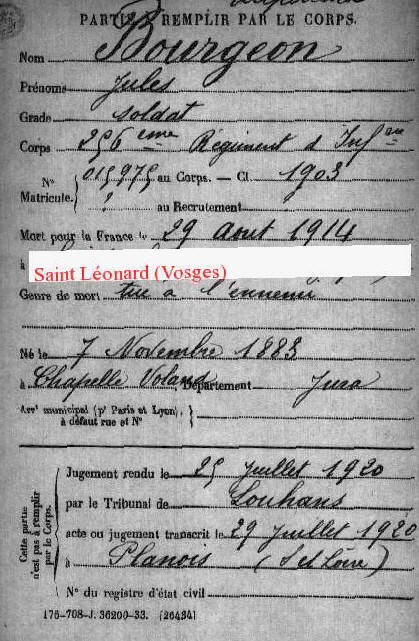 PARTIE À REMPLIR PAR LE CORPS.
Nom Bourgeon
Prénoms Jules
Grade soldat
Corps 256 eme Régiment d'Inf en
Nos Matricule. 015975 au Corps. — Cl. 1903
? au Recrutement
Mort pour la France le 29 Aout 1914
à Saint Léonard (Vosges)
Genre de mort tué à l'ennemi
Né le 7 Novembre 1883
à Chapelle Voland Département Jura
Arrt municipal (pr Paris et Lyon), à défaut rue et N°
Cette partie n'est pas à remplir par le Corps.
Jugement rendu le 25 Juillet 1920
par le Tribunal de Louhans
acte ou jugement transcrit le 29 Juillet 1920
à Planois (S et Loire)
N° du registre d'état civil
176-708-J. 36200-33. [26434]